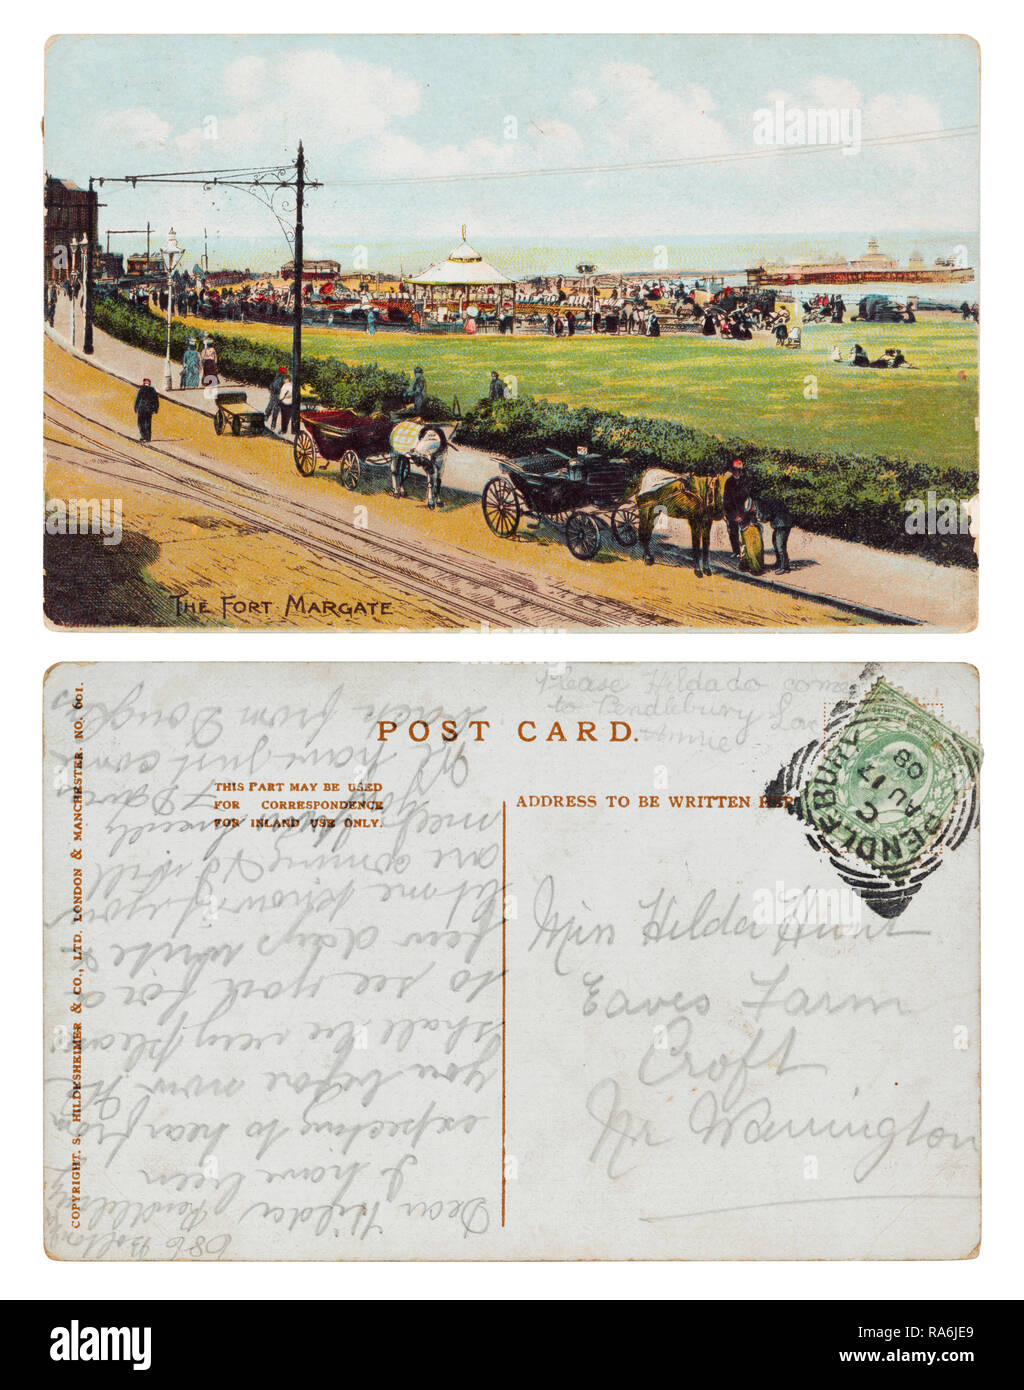 THE FORT MARGATE
Please Hilda do come
to Pendlebury Love
Annie
POST CARD.
THIS PART MAY BE USED
FOR CORRESPONDENCE
FOR INLAND USE ONLY.
ADDRESS TO BE WRITTEN HER
COPYRIGHT. S. HILDESHEIMER & CO., LTD. LONDON & MANCHESTER. NO. 601.
PENDLEBURY
C
AU 17
08
Miss Hilda Hunt
Eaves Farm
Croft
Nr Warrington
686 Bolton Rd
Pendlebury
Dear Hilda
I have been
expecting to hear from
you before now. We
shall be very pleased
to see you for a
few days write &
let me know if you
are coming & I will
meet you
Yours sincerely
We have just come
back from Douglas
alamy
Image ID: RA6JE9
www.alamy.com